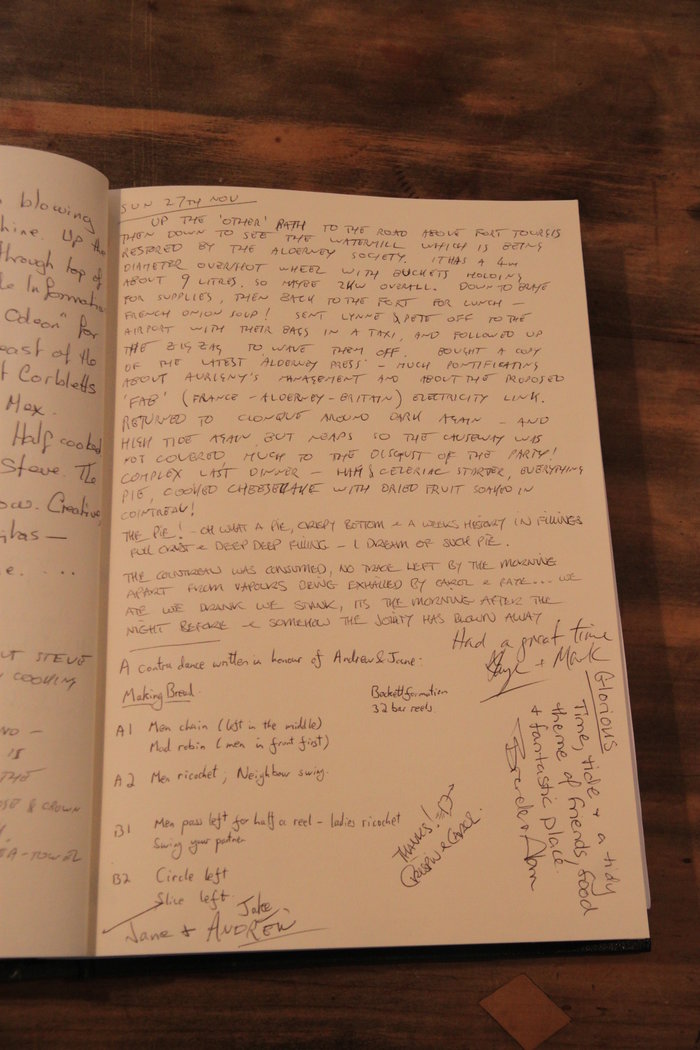 blowing
hine. Up the
through top of
le Information
Odeon" for
east of the
t Corbletts
Mex.
Half cooked
Steve. The
ow. Creative
itas —
e. ....
UT STEVE
COOKING
ND —
IS
THE
OSE & CROWN
EA-TOWEL
SUN 27TH NOV
UP THE 'OTHER' PATH TO THE ROAD ABOVE FORT TOURGIS
THEN DOWN TO SEE THE WATERMILL WHICH IS BEING
RESTORED BY THE ALDERNEY SOCIETY. IT HAS A 4m
DIAMETER OVERSHOT WHEEL WITH BUCKETS HOLDING
ABOUT 9 LITRES. SO MAYBE 2KW OVERALL. DOWN TO BRAYE
FOR SUPPLIES, THEN BACK TO THE FORT FOR LUNCH —
FRENCH ONION SOUP! SENT LYNNE & PETE OFF TO THE
AIRPORT WITH THEIR BAGS IN A TAXI, AND FOLLOWED UP
THE ZIG ZAG TO WAVE THEM OFF. BOUGHT A COPY
OF THE LATEST 'ALDERNEY PRESS' — MUCH PONTIFICATING
ABOUT AURIGNY'S MANAGEMENT AND ABOUT THE PROPOSED
'FAB' (FRANCE - ALDERNEY - BRITAIN) ELECTRICITY LINK.
RETURNED TO CLONQUE AROUND DARK AGAIN — AND
HIGH TIDE AGAIN, BUT NEAPS SO THE CAUSEWAY WAS
NOT COVERED MUCH TO THE DISGUST OF THE PARTY!
COMPLEX LAST DINNER — HAM & CELERIAC STARTER, EVERYTHING
PIE, COOKED CHEESECAKE WITH DRIED FRUIT SOAKED IN
COINTREAU!
THE PIE! - OH WHAT A PIE, CRISPY BOTTOM & A WEEKS HISTORY IN FILLINGS
FULL CRUST & DEEP DEEP FILLING — I DREAM OF SUCH PIE.
THE COINTREAU WAS CONSUMED, NO TRACE LEFT BY THE MORNING
APART FROM VAPOURS BEING EXHALED BY CAROL & FAYE... WE
ATE WE DRANK WE STANK, ITS THE MORNING AFTER THE
NIGHT BEFORE & SOMEHOW THE JOLLITY HAS BLOWN AWAY
Had a great time
Faye + Mark
A contra dance written in honour of Andrew & Jane:
Making Bread.
Beckett formation
32 bar reels.
A1 Men chain (left in the middle)
Mad robin (men in front first)
A2 Men ricochet; Neighbour swing.
B1 Men pass left for half a reel — ladies ricochet
Swing your partner
B2 Circle left
Slice left
Jake
Jane + ANDREW
THANKS!
& CAROL.
Glorious
Time, tide + a tidy
theme of friends, food
+ fantastic place.